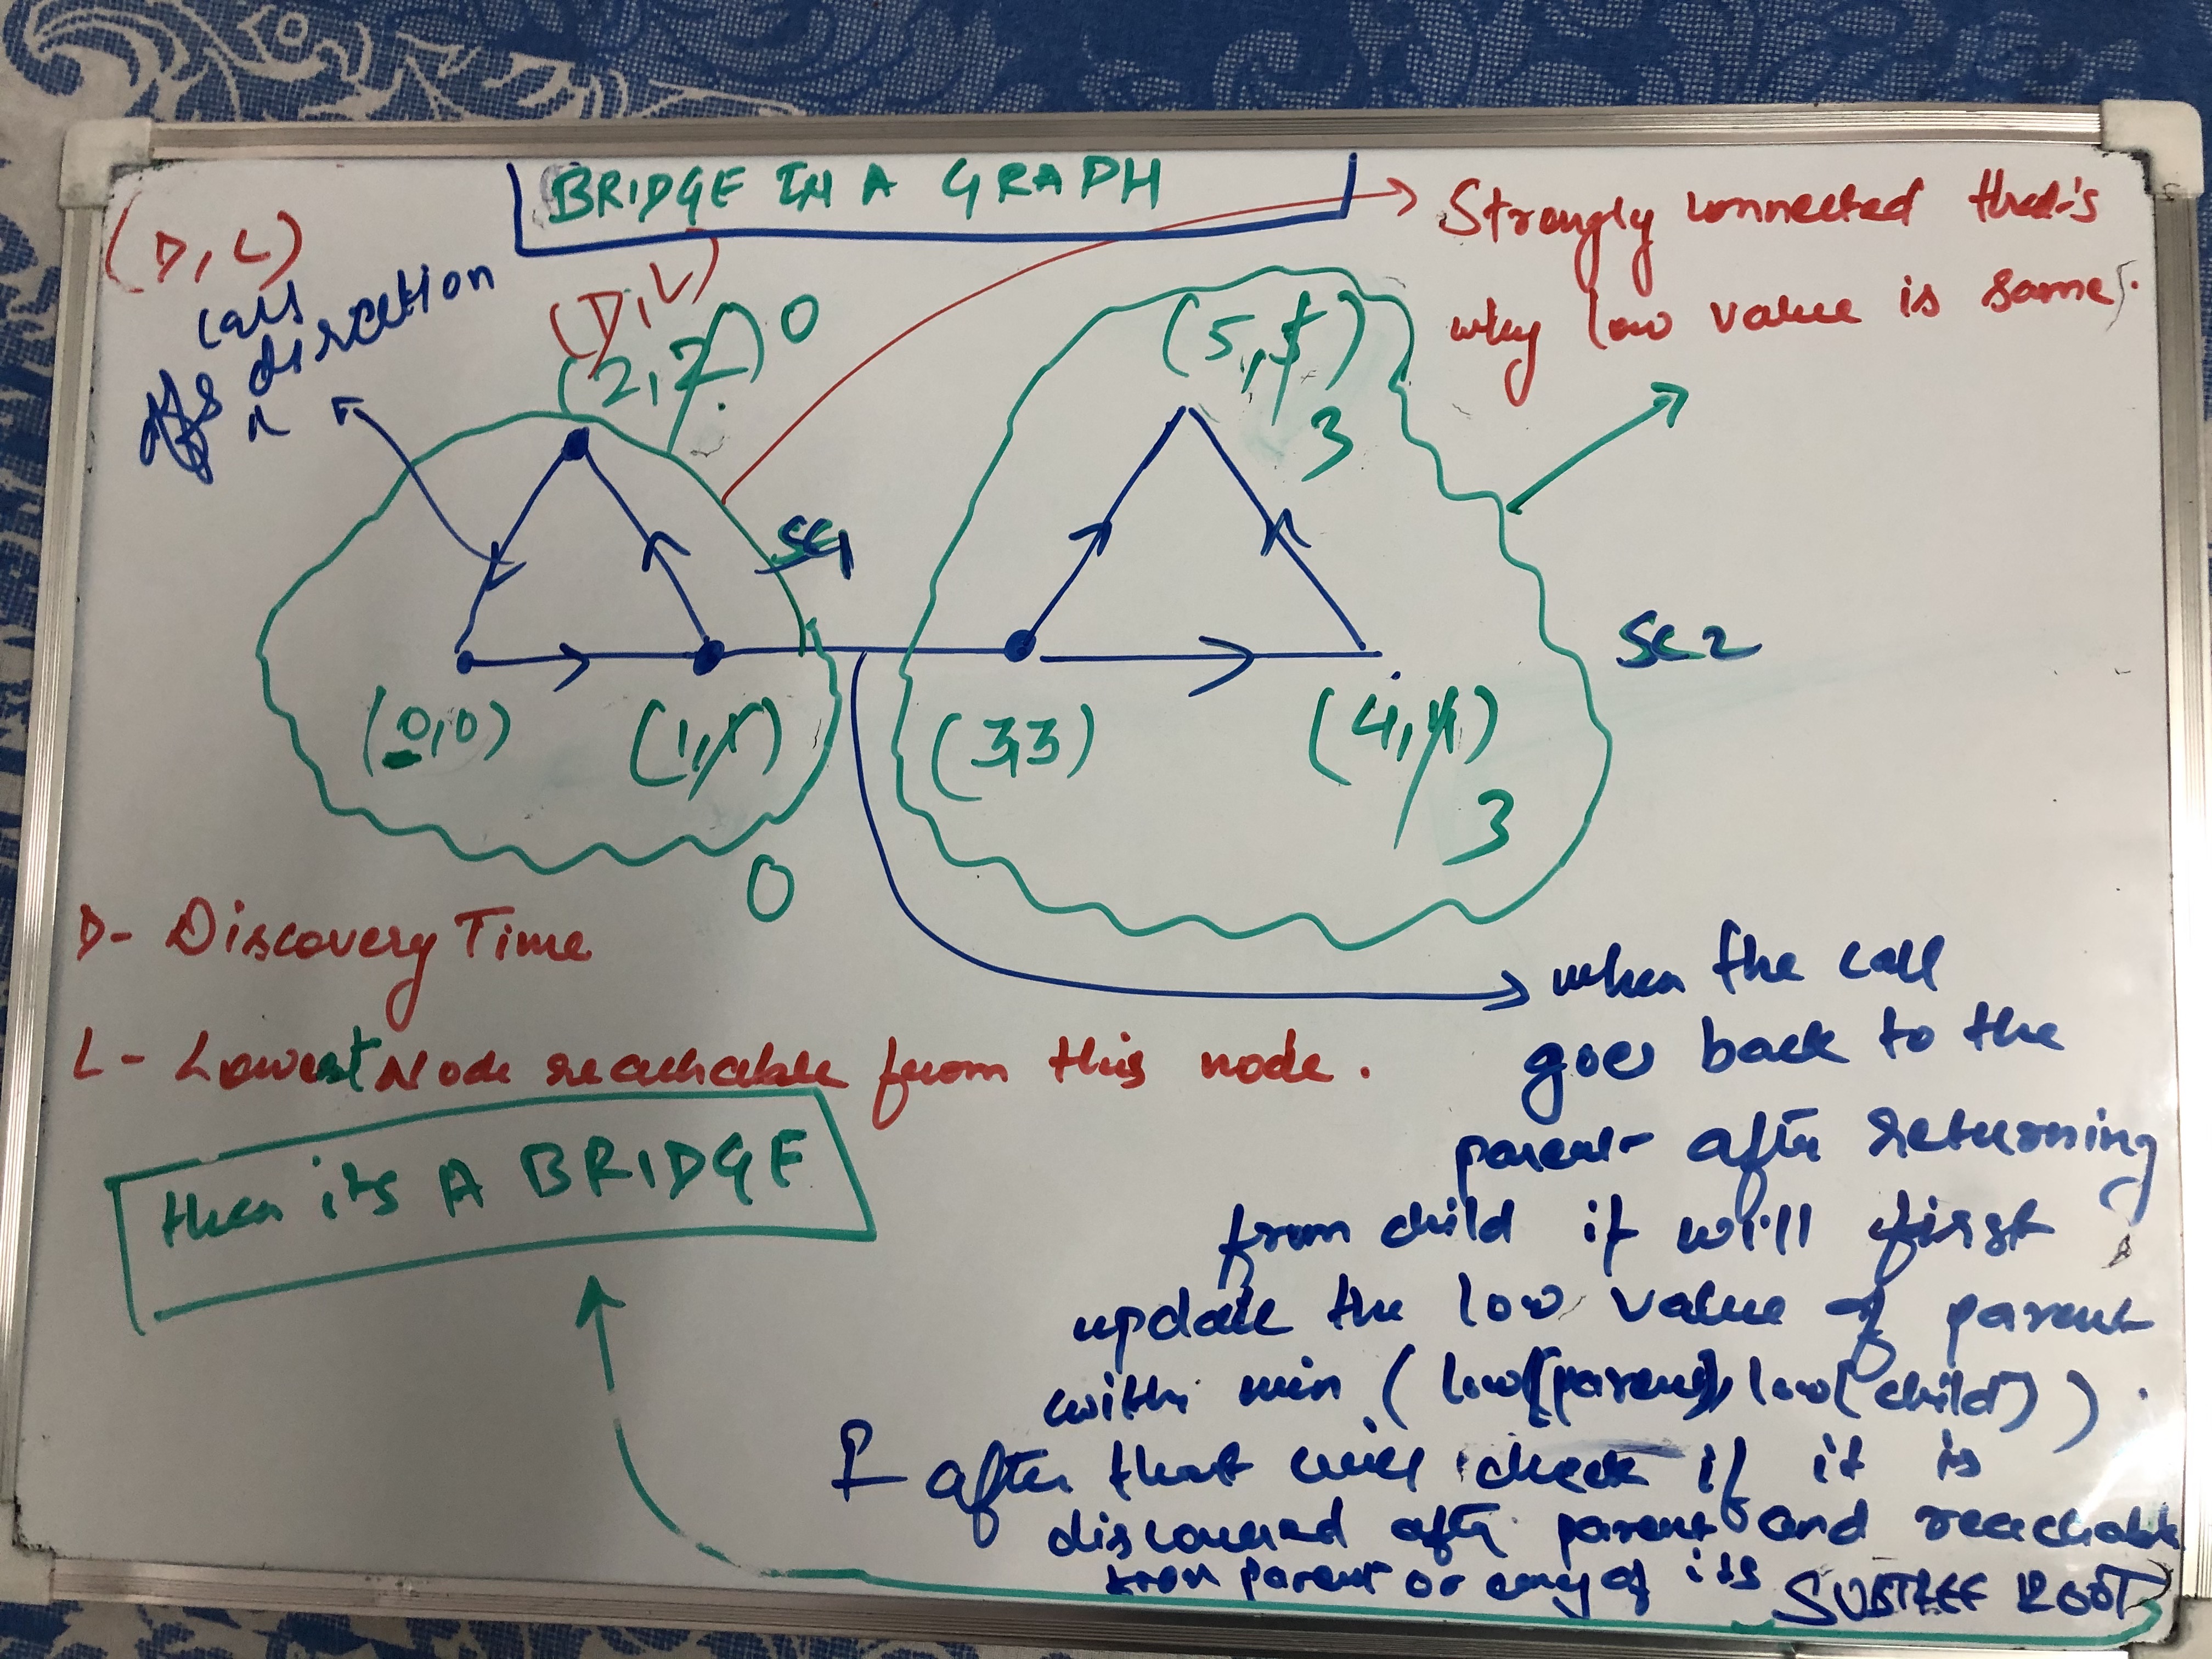 BRIDGE IN A GRAPH
(D, L)
calls
dfs direction
(D, L)
(2, 2) 0
Strongly connected that's
why low value is same.
(5, 5)
3
SC1
SC2
(0,0)
(1, 1)
0
(3,3)
(4, 4)
3
D- Discovery Time
L- Lowest Node reachable from this node.
then its A BRIDGE
when the call
goes back to the
parent after returning
from child it will first
update the low value of parent
with min (low[parent], low[child])
& after that will check if it is
discovered after parent and reachable
from parent or any of its SUBTREE ROOT